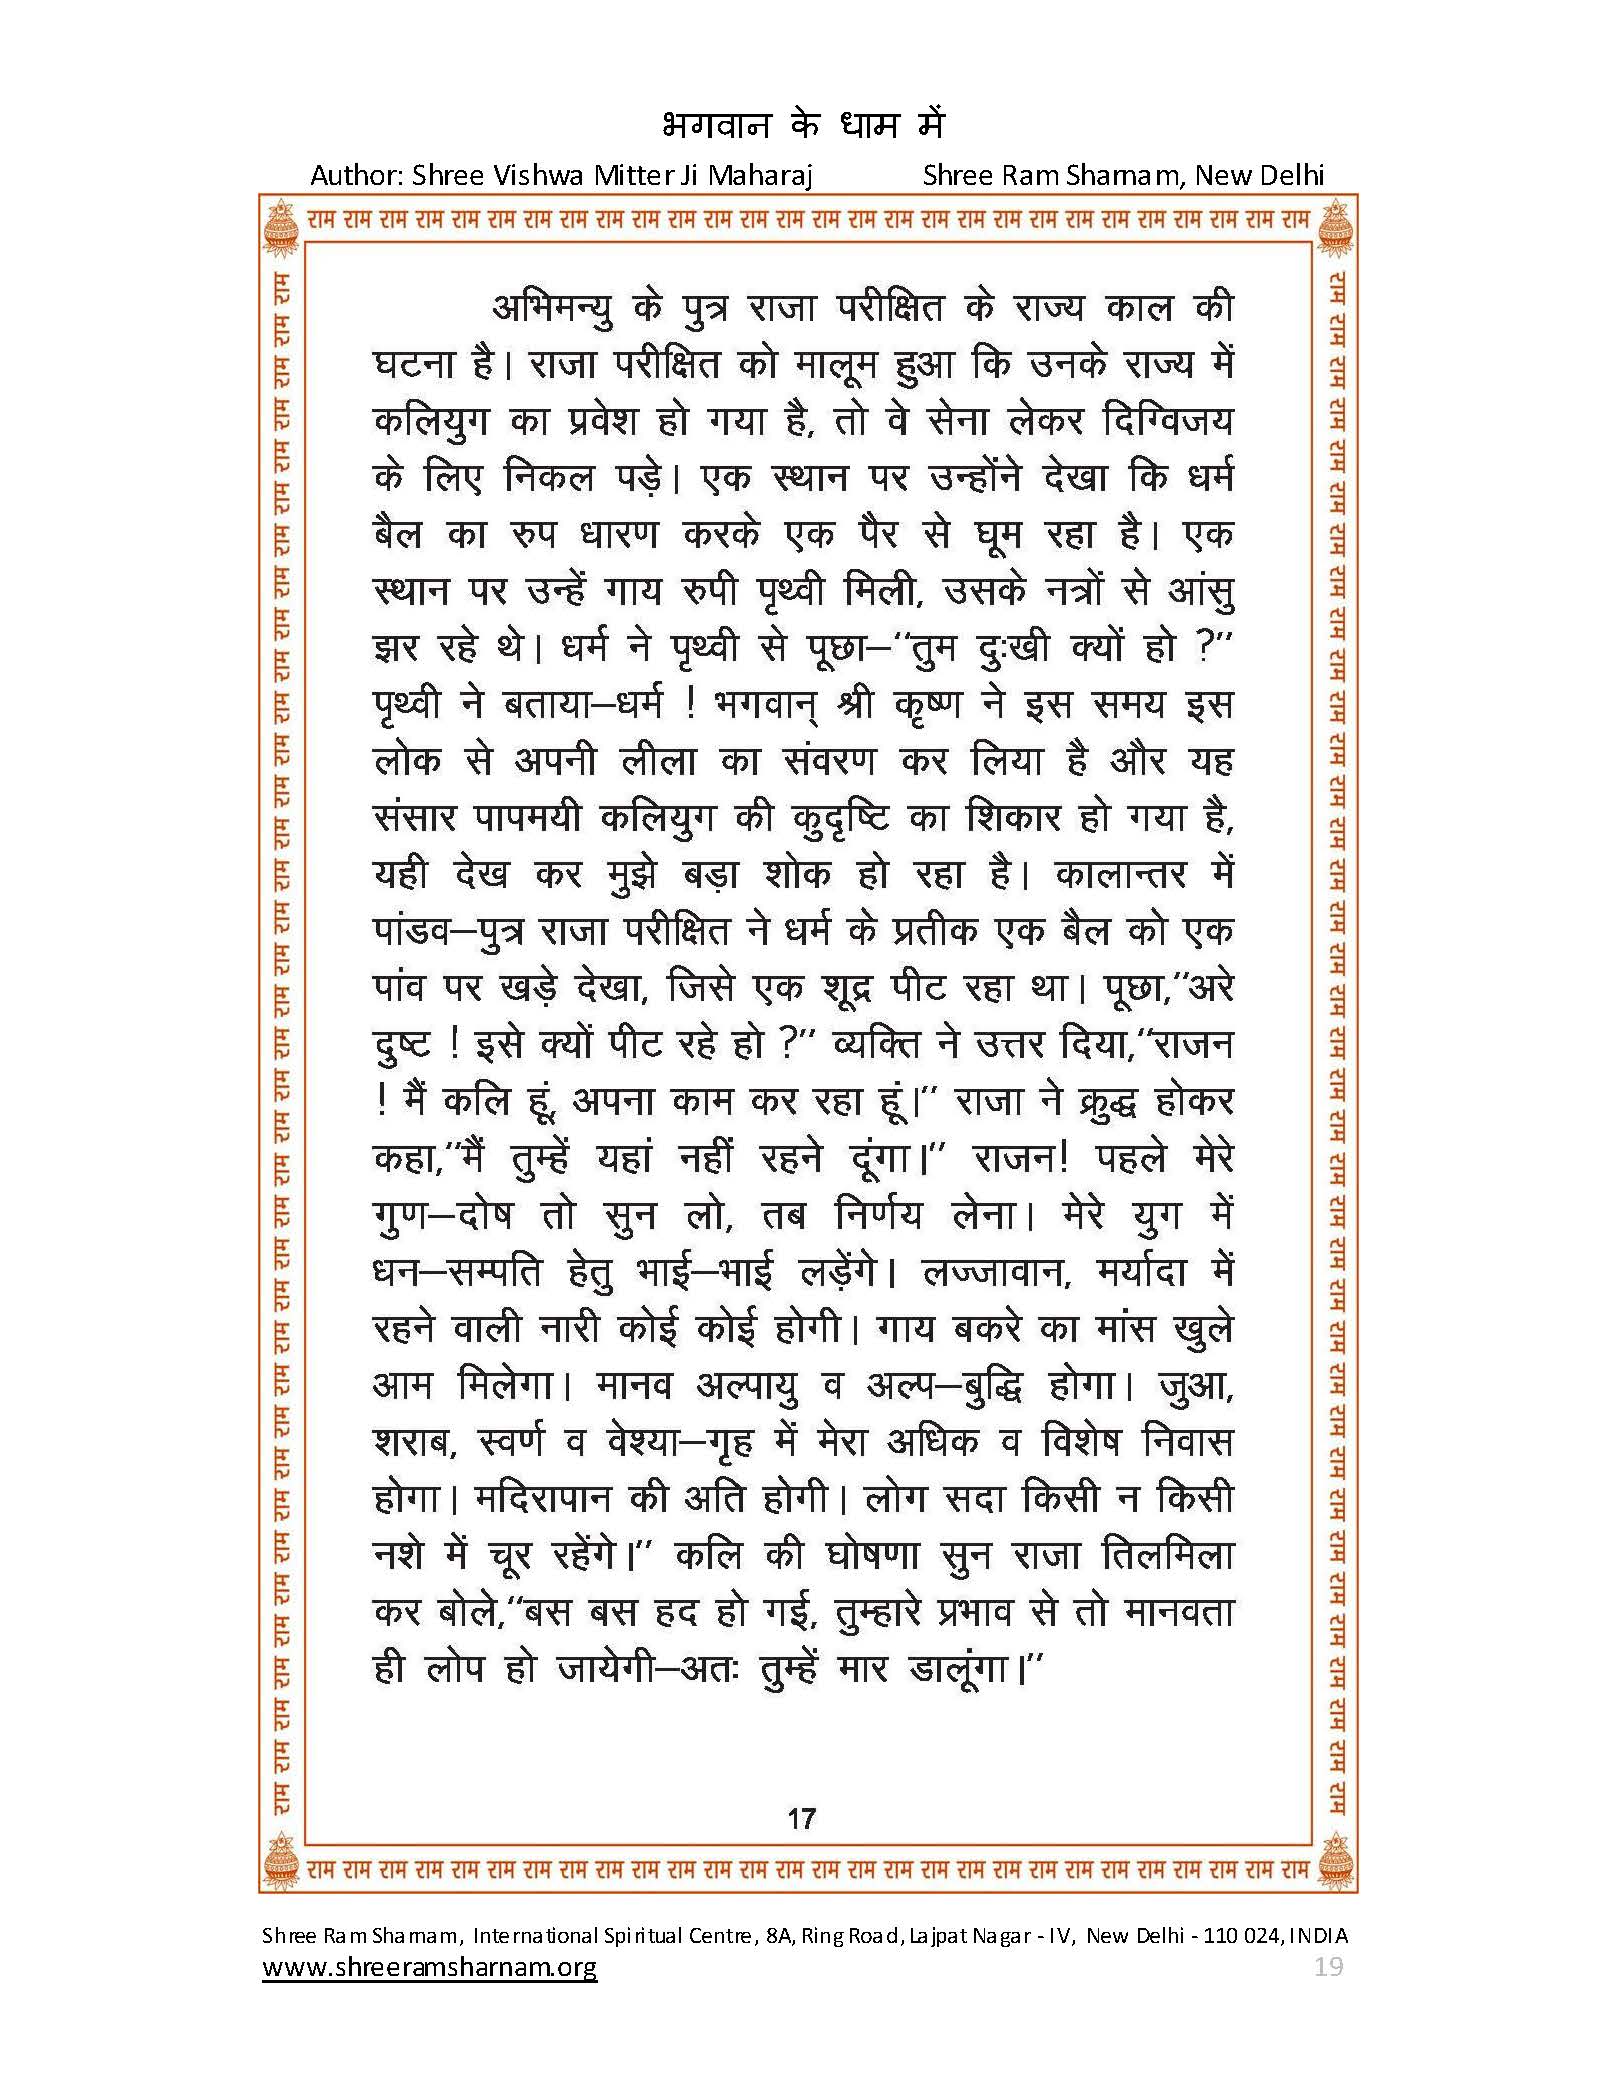 भगवान के धाम में
Author: Shree Vishwa Mitter Ji Maharaj Shree Ram Sharnam, New Delhi
राम राम राम राम राम राम राम राम राम राम राम राम राम राम राम राम राम राम राम राम राम राम राम राम राम राम राम राम
अभिमन्यु के पुत्र राजा परीक्षित के राज्य काल की
घटना है। राजा परीक्षित को मालूम हुआ कि उनके राज्य में
कलियुग का प्रवेश हो गया है, तो वे सेना लेकर दिग्विजय
के लिए निकल पड़े। एक स्थान पर उन्होंने देखा कि धर्म
बैल का रुप धारण करके एक पैर से घूम रहा है। एक
स्थान पर उन्हें गाय रुपी पृथ्वी मिली, उसके नत्रों से आंसु
झर रहे थे। धर्म ने पृथ्वी से पूछा–‘‘तुम दुःखी क्यों हो ?’’
पृथ्वी ने बताया–धर्म ! भगवान् श्री कृष्ण ने इस समय इस
लोक से अपनी लीला का संवरण कर लिया है और यह
संसार पापमयी कलियुग की कुदृष्टि का शिकार हो गया है,
यही देख कर मुझे बड़ा शोक हो रहा है। कालान्तर में
पांडव–पुत्र राजा परीक्षित ने धर्म के प्रतीक एक बैल को एक
पांव पर खड़े देखा, जिसे एक शूद्र पीट रहा था। पूछा,‘‘अरे
दुष्ट ! इसे क्यों पीट रहे हो ?’’ व्यक्ति ने उत्तर दिया,‘‘राजन
! मैं कलि हूं, अपना काम कर रहा हूं।’’ राजा ने क्रुद्ध होकर
कहा,‘‘मैं तुम्हें यहां नहीं रहने दूंगा।’’ राजन! पहले मेरे
गुण–दोष तो सुन लो, तब निर्णय लेना। मेरे युग में
धन–सम्पति हेतु भाई–भाई लड़ेंगे। लज्जावान, मर्यादा में
रहने वाली नारी कोई कोई होगी। गाय बकरे का मांस खुले
आम मिलेगा। मानव अल्पायु व अल्प–बुद्धि होगा। जुआ,
शराब, स्वर्ण व वेश्या–गृह में मेरा अधिक व विशेष निवास
होगा। मदिरापान की अति होगी। लोग सदा किसी न किसी
नशे में चूर रहेंगे।’’ कलि की घोषणा सुन राजा तिलमिला
कर बोले,‘‘बस बस हद हो गई, तुम्हारे प्रभाव से तो मानवता
ही लोप हो जायेगी–अतः तुम्हें मार डालूंगा।’’
17
राम राम राम राम राम राम राम राम राम राम राम राम राम राम राम राम राम राम राम राम राम राम राम राम राम राम राम राम
राम राम राम राम राम राम राम राम राम राम राम राम राम राम राम राम राम राम राम राम राम राम राम राम राम राम राम राम राम राम राम राम राम राम राम राम राम
राम राम राम राम राम राम राम राम राम राम राम राम राम राम राम राम राम राम राम राम राम राम राम राम राम राम राम राम राम राम राम राम राम राम राम राम राम
Shree Ram Sharnam, International Spiritual Centre, 8A, Ring Road, Lajpat Nagar - IV, New Delhi - 110 024, INDIA
www.shreeramsharnam.org 19